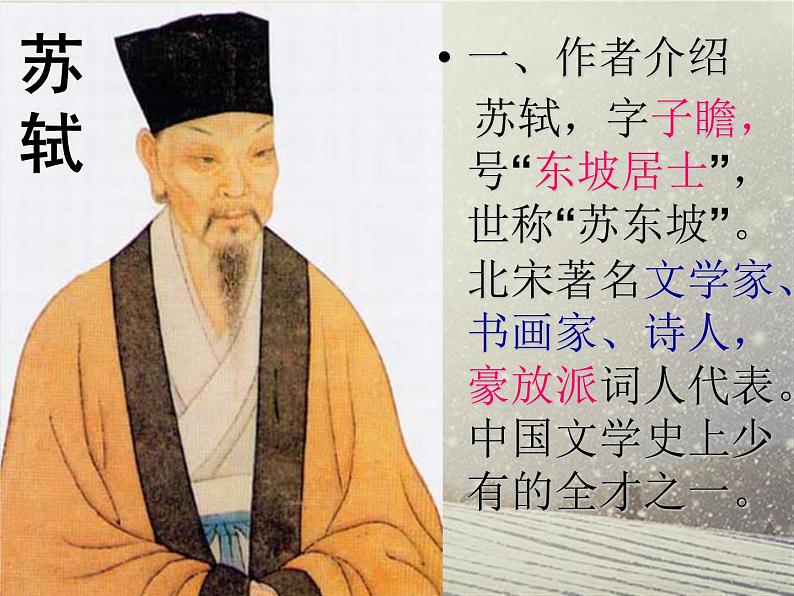 苏轼
• 一、作者介绍
苏轼，字子瞻，
号“东坡居士”，
世称“苏东坡”。
北宋著名文学家、
书画家、诗人，
豪放派词人代表。
中国文学史上少
有的全才之一。